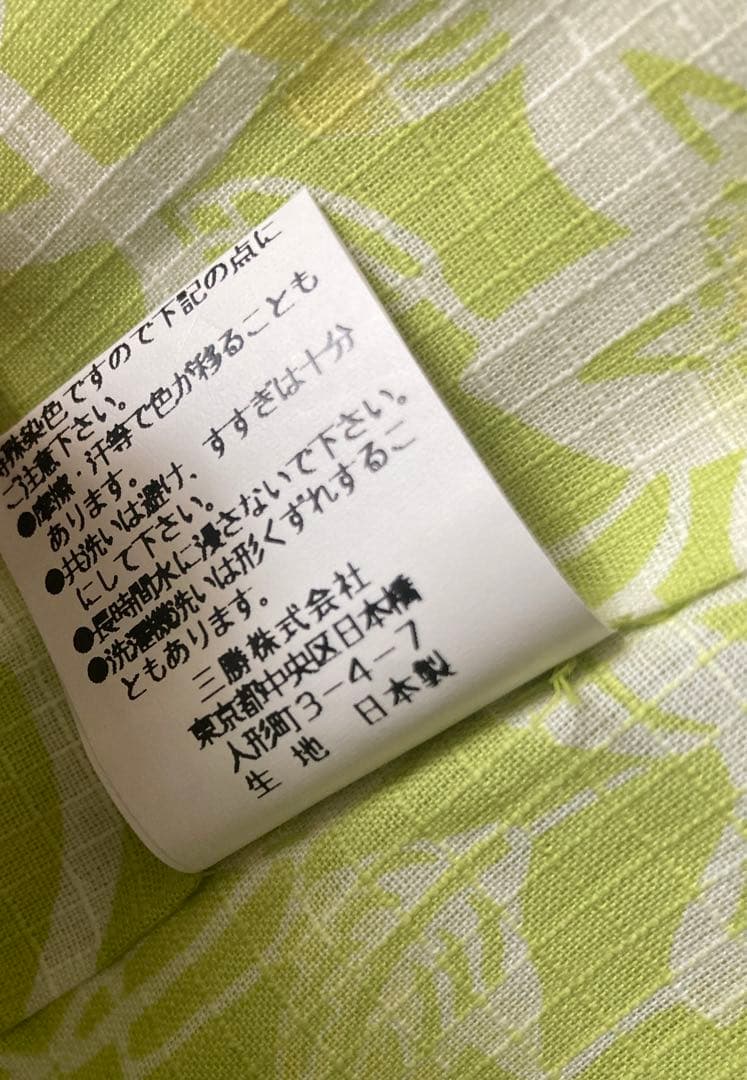 特殊染色ですので下記の点に
ご注意下さい。
●摩擦・汗等で色が移ることも
あります。
●共洗いは避け、すすぎは十分
にして下さい。
●長時間水に浸さないで下さい。
●洗濯機洗いは形くずれするこ
ともあります。
三勝株式会社
東京都中央区日本橋
人形町3-4-7
生地 日本製